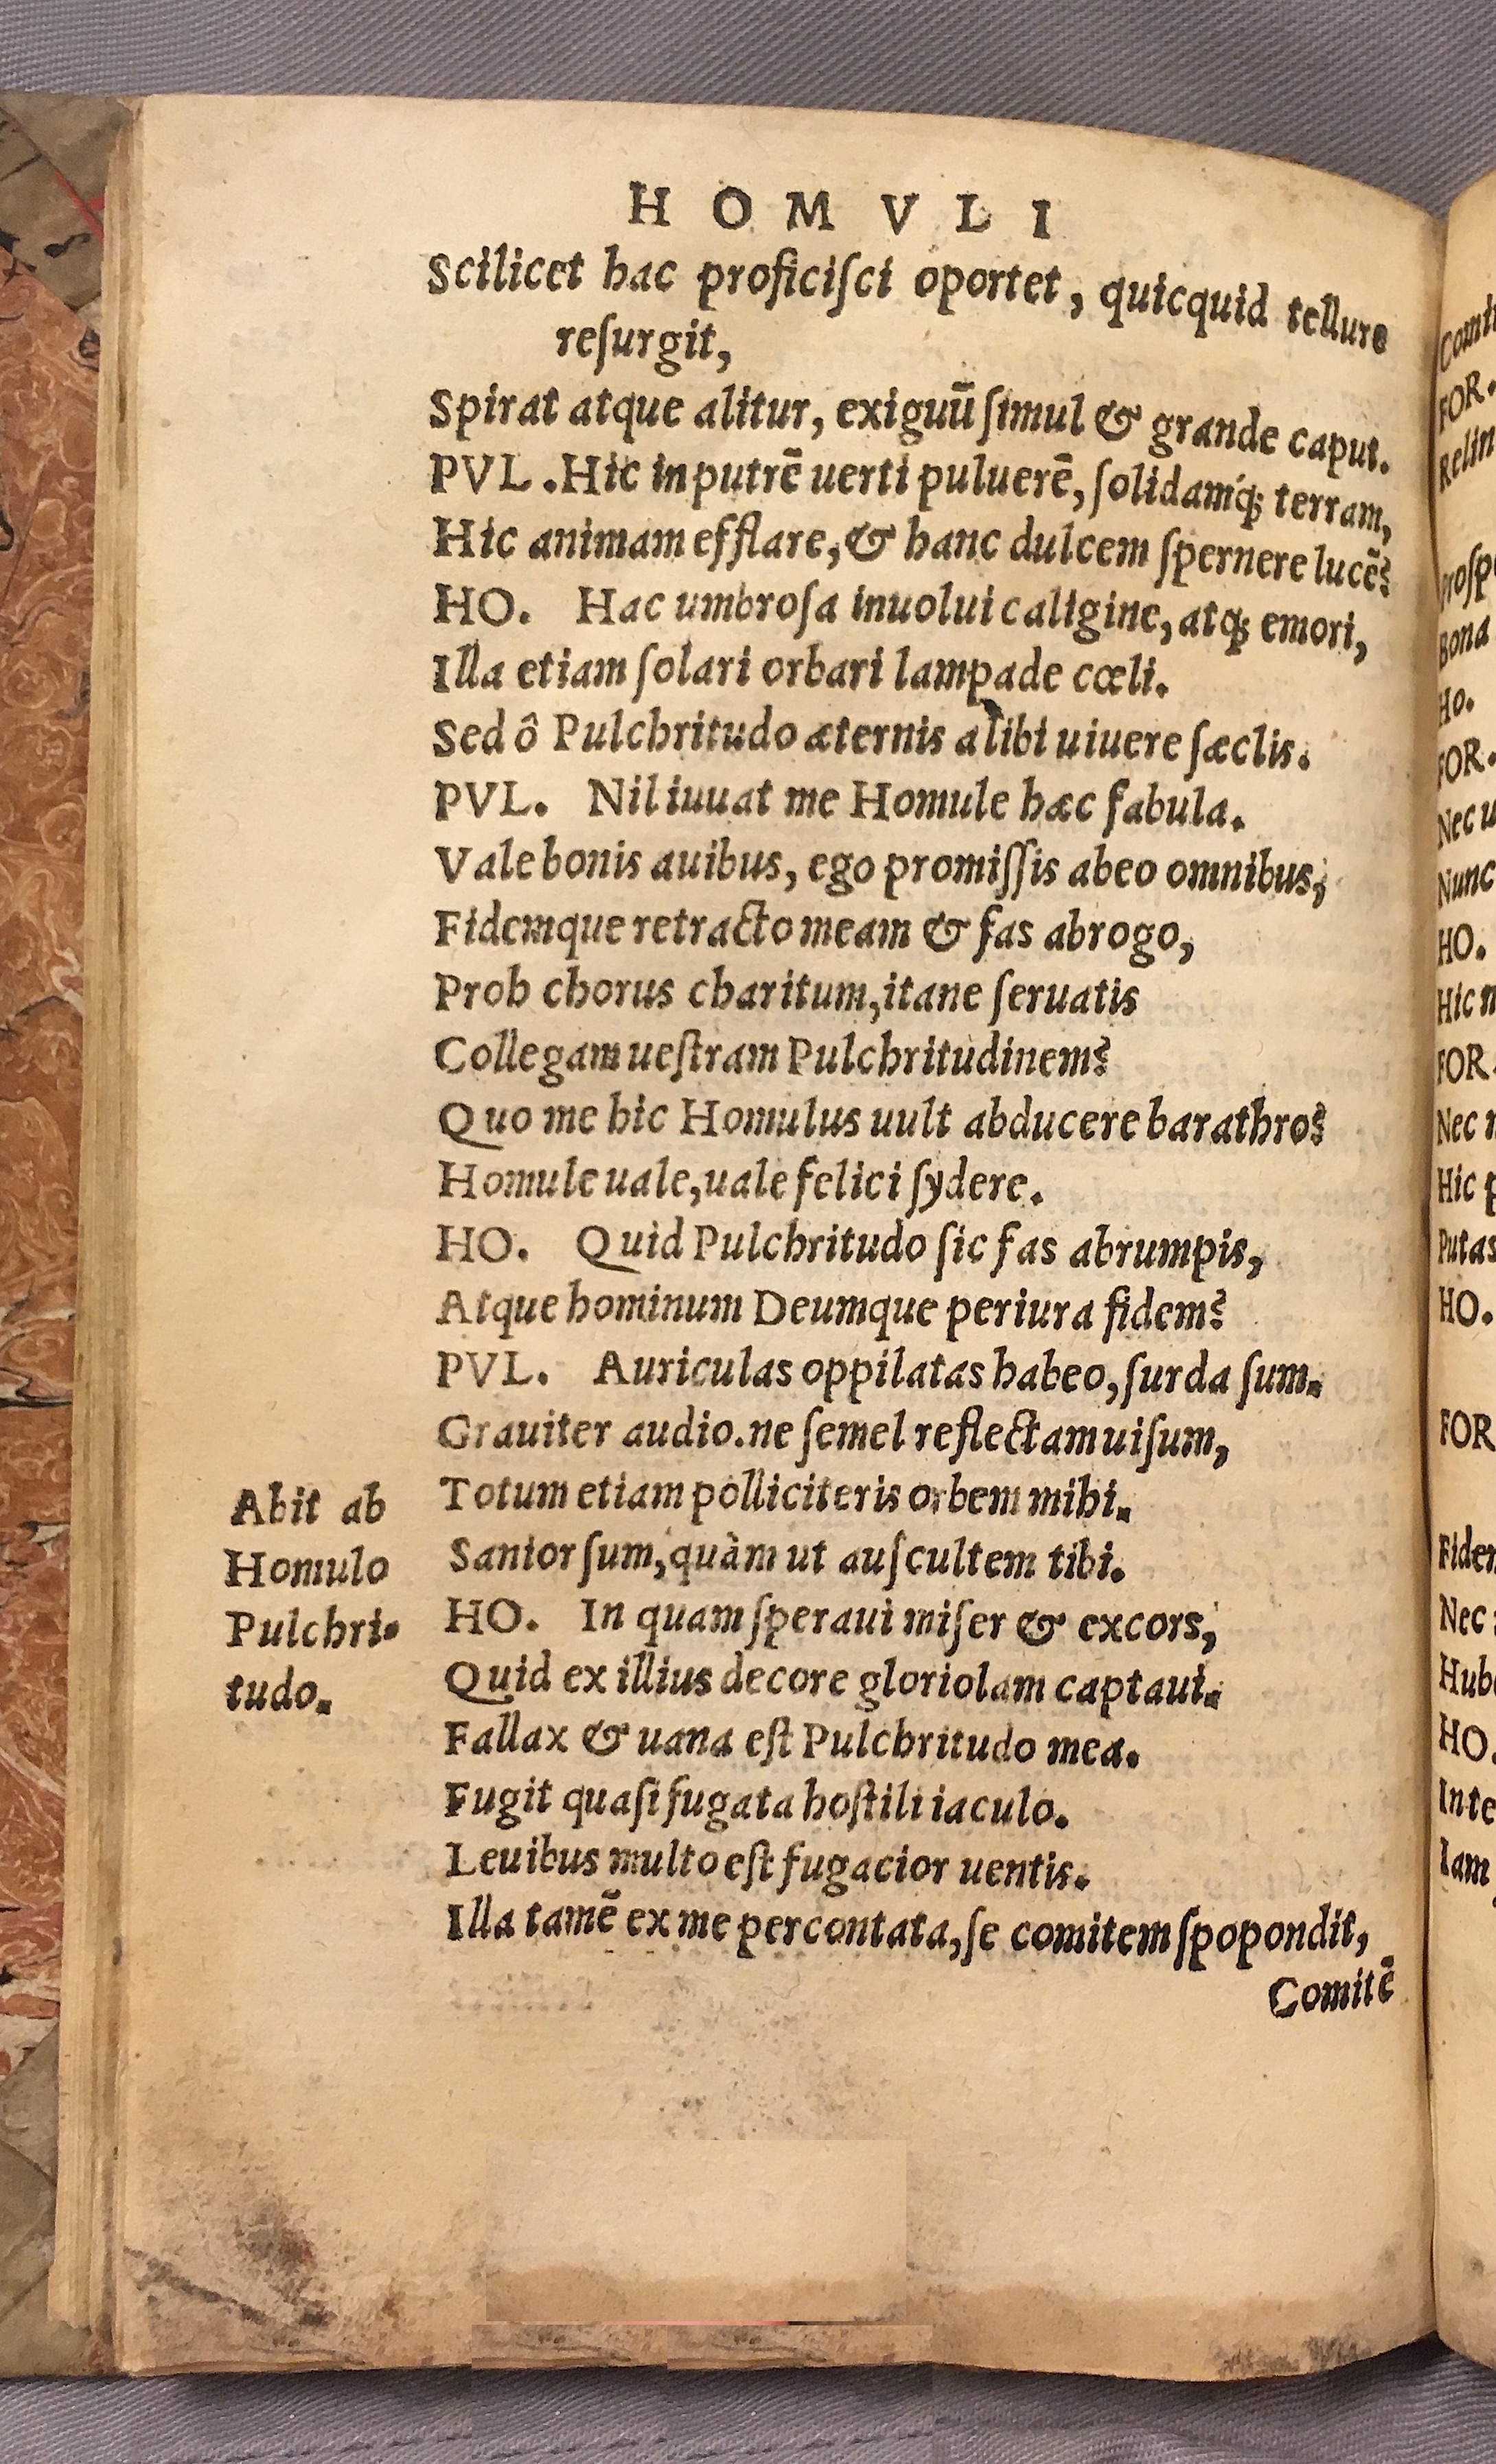 HOMVLI
Scilicet hac proficiſci oportet, quicquid tellure
reſurgit,
Spirat atque alitur, exiguū ſimul & grande caput.
PVL. Hic in putrē uerti puluerē, ſolidamq́; terram,
Hic animam efflare, & hanc dulcem ſpernere lucē?
HO. Hac umbroſa inuolui caligine, atq; emori,
Illa etiam ſolari orbari lampade cœli.
Sed ô Pulchritudo æternis alibi uiuere ſæclis.
PVL. Nil iuuat me Homule hæc fabula.
Vale bonis auibus, ego promiſſis abeo omnibus,
Fidemque retracto meam & fas abrogo,
Proh chorus charitum, itane ſeruatis
Collegam ueſtram Pulchritudinem?
Quo me hic Homulus uult abducere barathro?
Homule uale, uale felici ſydere.
HO. Quid Pulchritudo ſic fas abrumpis,
Atque hominum Deumque periura fidem?
PVL. Auriculas oppilatas habeo, ſurda ſum.
Grauiter audio. ne ſemel reflectam uiſum,
Totum etiam polliciteris orbem mihi.
Sanior ſum, quàm ut auſcultem tibi.
HO. In quam ſperaui miſer & excors,
Quid ex illius decore gloriolam captaui.
Fallax & uana eſt Pulchritudo mea.
Fugit quaſi fugata hoſtili iaculo.
Leuibus multo eſt fugacior uentis.
Illa tamē ex me percontata, ſe comitem ſpopondit,
Comitē
Abit ab
Homulo
Pulchri-
tudo.
FOR.
HO.
FOR.
Nunc
HO.
FOR.
HO.
FOR
HO.